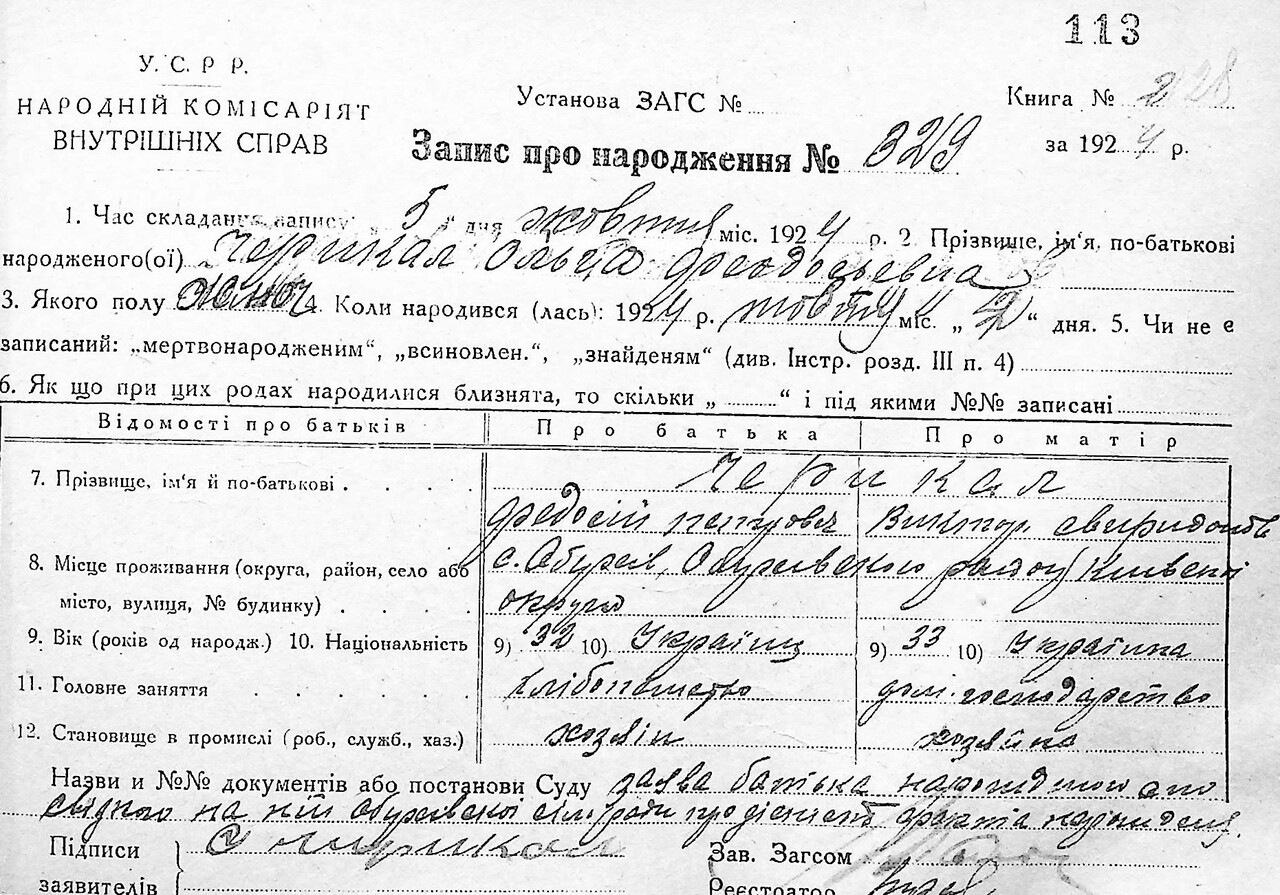 113
У. С. Р Р.
НАРОДНІЙ КОМІСАРІЯТ
ВНУТРІШНІХ СПРАВ
Установа ЗАГС №
Книга № 2 228
за 1924 р.
Запис про народження № 329
1. Час складання запису: „ 5 „ дня жовтня міс. 1924 р. 2. Прізвище, ім'я, по-батькові
народженого(ої) Черикал Ольга Феодосьевна
3. Якого полу жіноч 4. Коли народився (лась): 1924 р. жовтня міс. „ 2 “ дня. 5. Чи не є
записаний: „мертвонародженим“, „всиновлен.“, „знайденям“ (див. Інстр. розд. III п. 4)
6. Як що при цих родах народилися близнята, то скільки „ “ і під якими №№ записані
Відомості про батьків Про батька Про матір
7. Прізвище, ім'я й по-батькові Черикал
Федосій петрович Виктор. свиридонов
8. Місце проживання (округа, район, село або с. Обухів, Обухівського району Київскої
місто, вулиця, № будинку) округи
9. Вік (років од народж.) 10. Національність 9) 32 10) Українц 9) 33 10) Українка
11. Головне заняття хлібопашство дом. господарство
12. Становище в промислі (роб., служб., хаз.) хозяін хозяйка
Назви и №№ документів або постанови Суду заява батька
на ній обухівскої сільради про дієсність факта народження.
Підписи
заявителів
Зав. Загсом
Реєстратор